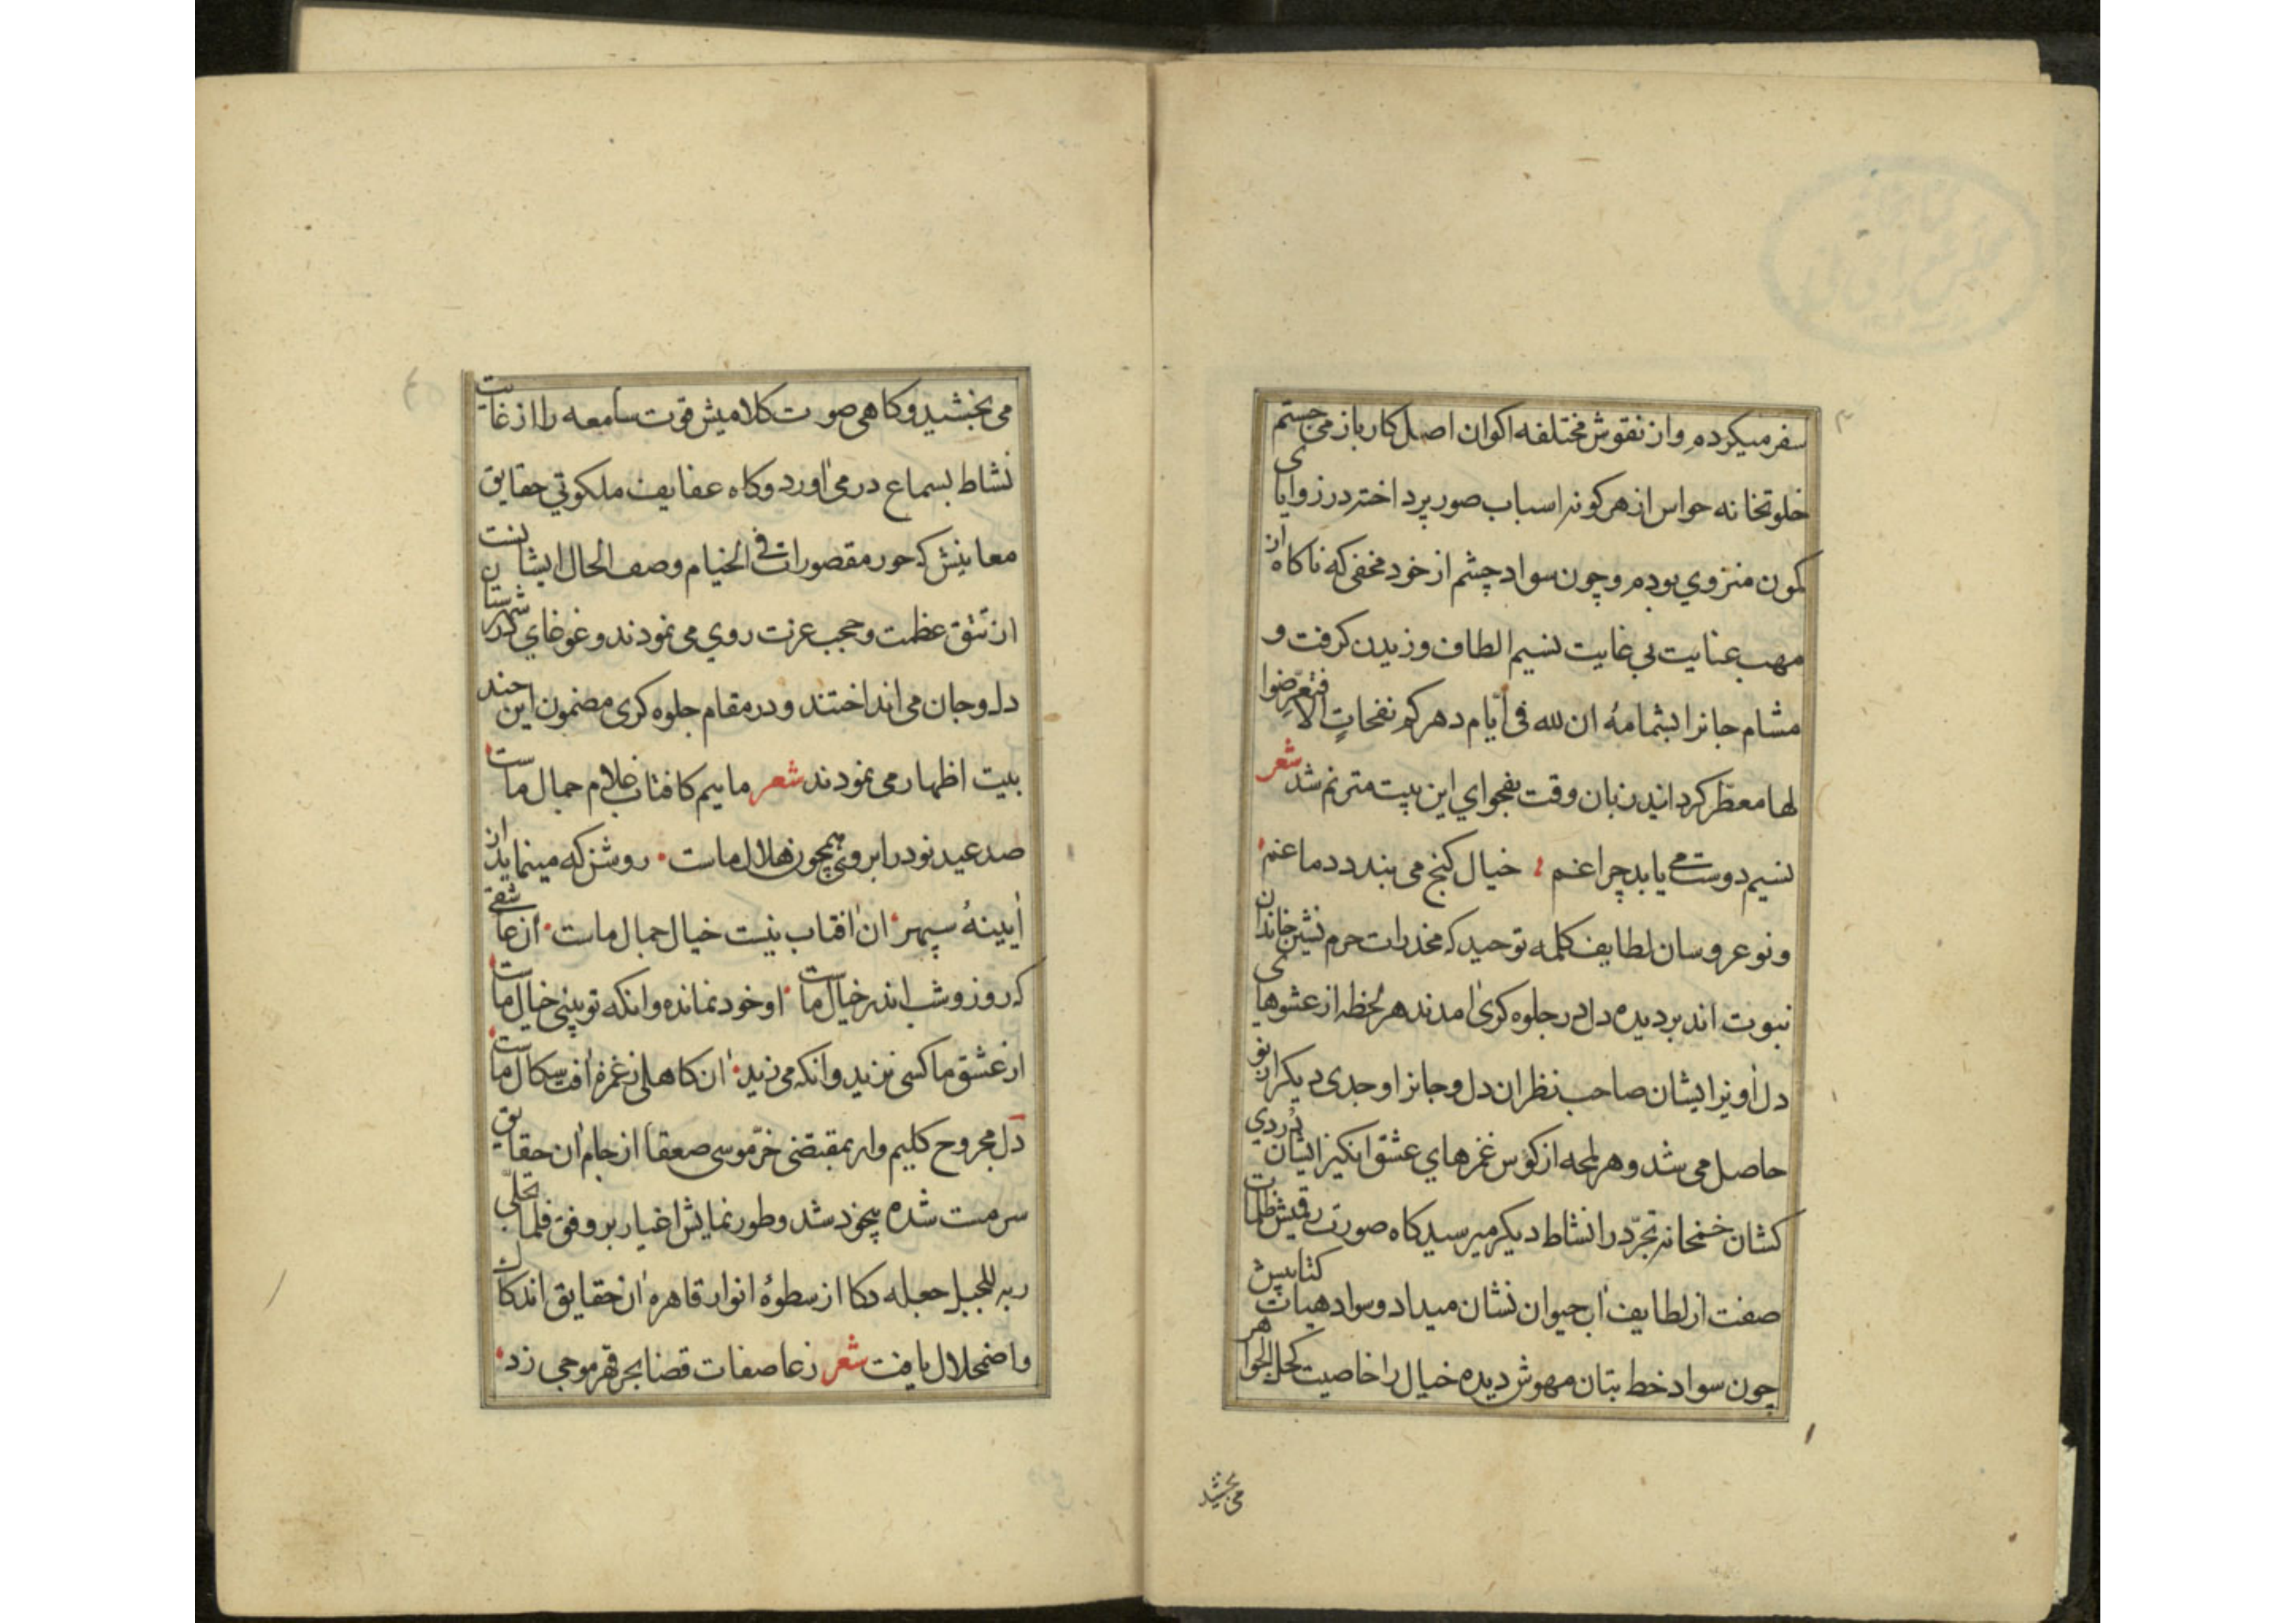 سفر میکردم و از نقوش مختلفه اکوان اصل کار باز می جستم
خلوتخانه حواس از هر کونه اسباب صور پرداخته در زوایای
کمون منزوي بودم و چون سواد چشم از خود مخفی که ناکاه از
مهب عنایت بی غایت نسیم الطاف وزیدن کرفت و
مشام جانرا بشمامهٔ ان لله فی أیّام دهرکم نفحاتٍ الا فتعرّضوا
لها معطّر کردانید زبان وقت بفحواي این بیت مترنم شد شعر
نسیم دوست می یابد چراغم خیال کنج می بندد دماغم
و نو عروسان لطایف کلمه توحید که مخدرات حرم نشین خاندان
نبوت اند بر دیده دل در جلوه کری آمدند هر لحظه از عشوهای
دل آویز ایشان صاحب نظران دل و جانرا وجدی دیکر از نو
حاصل می شد و هر لمحه از کؤس غمزهاي عشق انکیز ایشان دُردي
کشان خمخانه تجرّد را نشاط دیکر میرسید کاه صورت رقیش ظلمات
صفت از لطایف آب حیوان نشان میداد و سواد هیات کتابیش
چون سواد خط بتان مهوش دیده خیال را خاصیت کحل الجواهر
می بخشید
می بخشید و کاهی صورت کلامیش قوت سامعه را از غایت
نشاط بسماع در می آورد و کاه عفایف ملکوتي حقایق
معانیش که حور مقصورات فی الخیام وصف الحال ایشانست
از تتق عظمت و حجب عزت روي می نمودند و غوغاي در شهرستان
دل و جان می انداختند و در مقام جلوه کری مضمون این چند
بیت اظهار می نمودند شعر ماییم کافتاب غلام جمال ماست
صد عید نو در ابروی همچون هلال ماست روشن که مینماید از
آیینهٔ سپهر آن آفتاب نیست خیال جمال ماست آن عاشقی
که روز و شب اندر خیال ماست او خود نمانده وانکه تو بینی خیال ماست
از عشق ما کسی نزید وانکه می زید آن کاهلی ز غمزه آفت سکال ماست
دل مجروح کلیم وار بمقتضی خرّ موسی صعقا از جام آن حقایق
سرمست شده بیخود شد و طور نمایش اغیار بر وفق فلما تجلّی
ربه للجبل جعله دکا از سطوهٔ انوار قاهره آن حقایق اندکاک
و اضمحلال یافت شعر ز عاصفات قضا بحر قهر موجی زد